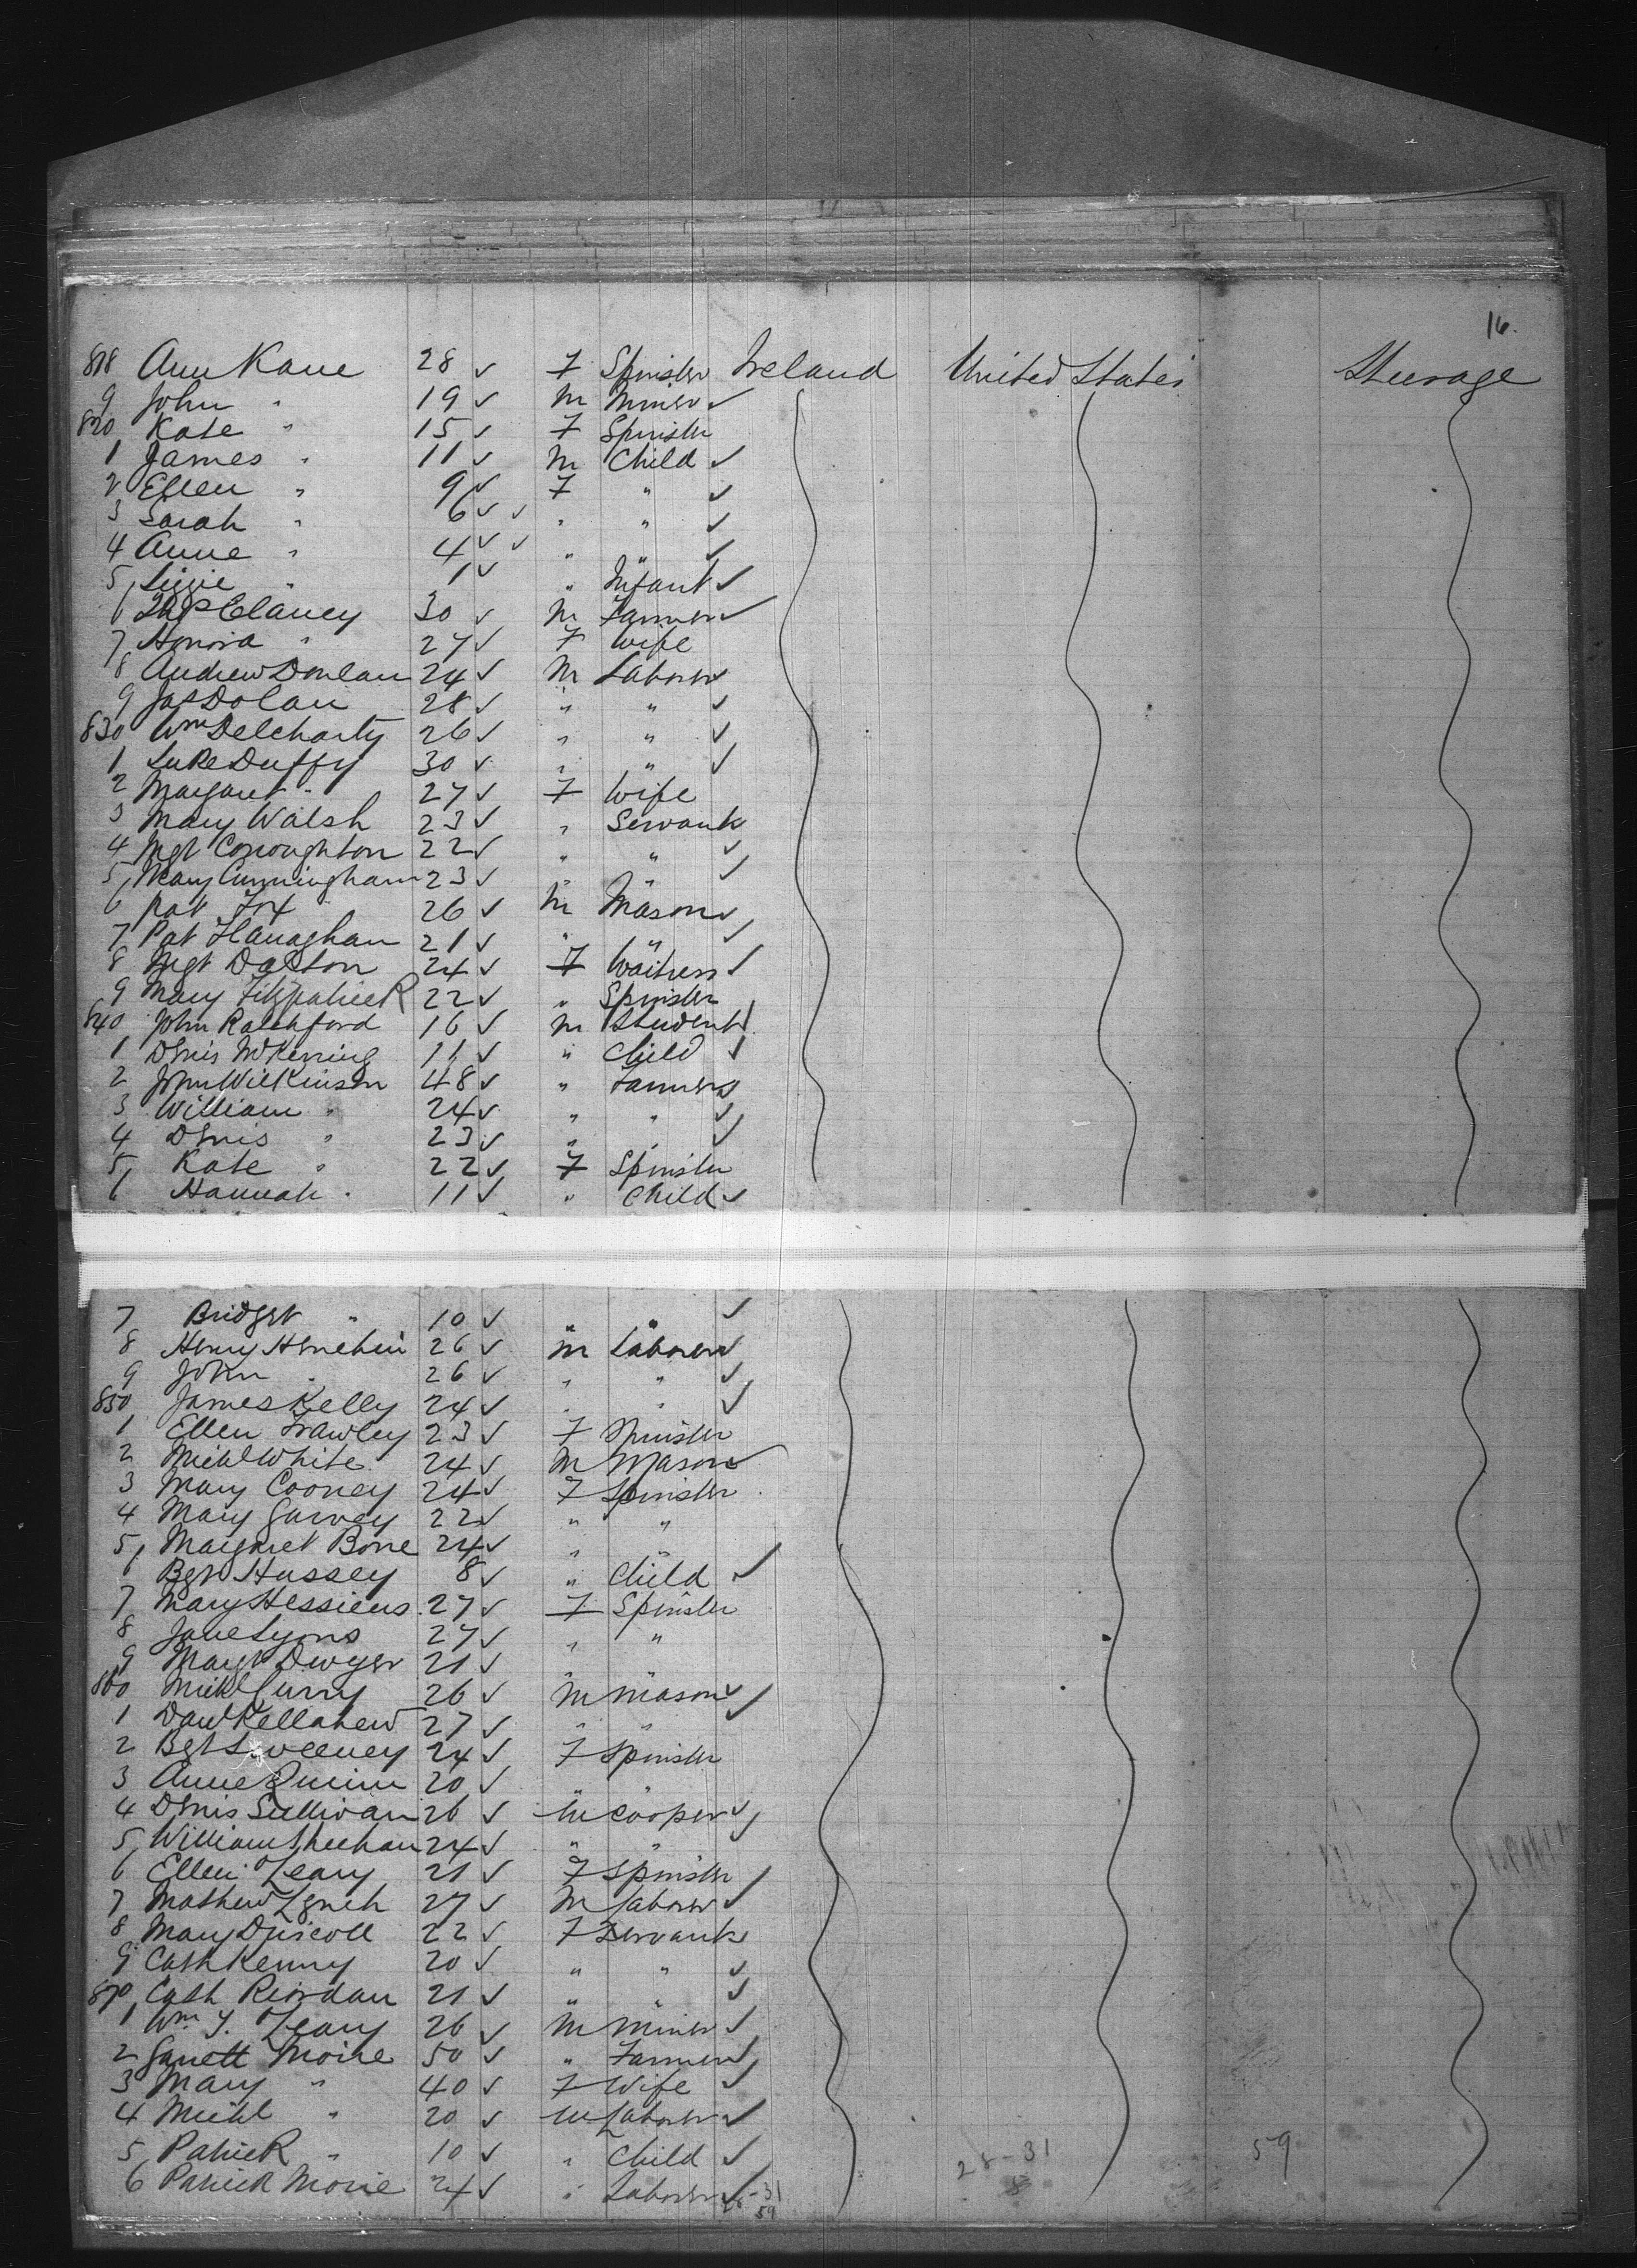 16.
818 Ann Kane 28 ✓ F Spinster Ireland United States Steerage
9 John " 19 ✓ M Miner ✓
820 Kate " 15 ✓ F Spinster
1 James " 11 ✓ M Child ✓
2 Ellen " 9 ✓ F " ✓
3 Sarah " 6 ✓ ✓ " " ✓
4 Anne " 4 ✓ ✓ " " ✓
5 Lizzie " 1 ✓ " Infant ✓
6 Clancy 30 ✓ M Farmer ✓
7 Honora " 27 ✓ F Wife
8 Andrew Donlan 24 ✓ M Laborer ✓
9 Jas Dolan 28 ✓ " " ✓
830 Wm Delcharty 26 ✓ " " ✓
1 Luke Duffy 30 ✓ " " ✓
2 Margaret " 27 ✓ F Wife
3 Mary Walsh 23 ✓ " Servant ✓
4 Mgt Conoughton 22 ✓ " " ✓
5 Mary Cunningham 23 ✓ " " ✓
6 Pat Fox 26 ✓ M Mason ✓
7 Pat Flanaghan 21 ✓ " " ✓
8 Mgt Dalton 24 ✓ F Waitress ✓
9 Mary Fitzpatrick 22 ✓ " Spinster
840 John Ratchford 16 ✓ M Student ✓
1 Denis 11 ✓ " Child ✓
2 John Wilkinson 48 ✓ " Farmer ✓
3 William " 24 ✓ " " ✓
4 Denis " 23 ✓ " " ✓
5 Kate " 22 ✓ F Spinster
6 Hannah " 11 ✓ " Child ✓
7 Bridget " 10 ✓ " " ✓
8 Henry 26 ✓ M Laborer ✓
9 John " 26 ✓ " " ✓
850 James Kelly 24 ✓ " " ✓
1 Ellen Frawley 23 ✓ F Spinster
2 Michl White 24 ✓ M Mason ✓
3 Mary Cooney 24 ✓ F Spinster
4 Mary Garvey 22 ✓ " "
5 Margaret Bone 24 ✓ " "
6 Bgt Hussey 8 ✓ " Child ✓
7 Mary Hessiens 27 ✓ F Spinster
8 Jane Lyons 27 ✓ " "
9 Margt Dwyer 21 ✓ " "
860 Michl Curry 26 ✓ M Mason ✓
1 Danl Kellahew 27 ✓ " " ✓
2 Bgt Sweeney 24 ✓ F Spinster
3 Anne Quinn 20 ✓ " "
4 Denis Sullivan 26 ✓ M Cooper ✓
5 William Sheehan 24 ✓ " " ✓
6 Ellen Leary 21 ✓ F Spinster
7 Mathew Lynch 27 ✓ M Laborer ✓
8 Mary Driscoll 22 ✓ F Servant ✓
9 Cath Kenny 20 ✓ " " ✓
870 Cath Riordan 21 ✓ " " ✓
1 Wm J. Leary 26 ✓ M Miner ✓
2 Garrett Moire 50 ✓ " Farmer ✓
3 Mary " 40 ✓ F Wife ✓
4 Michl " 20 ✓ M Laborer ✓
5 Patrick " 10 ✓ " Child ✓
6 Patrick Morie 24 ✓ " Laborer ✓
28-31
8
59
28-31
59